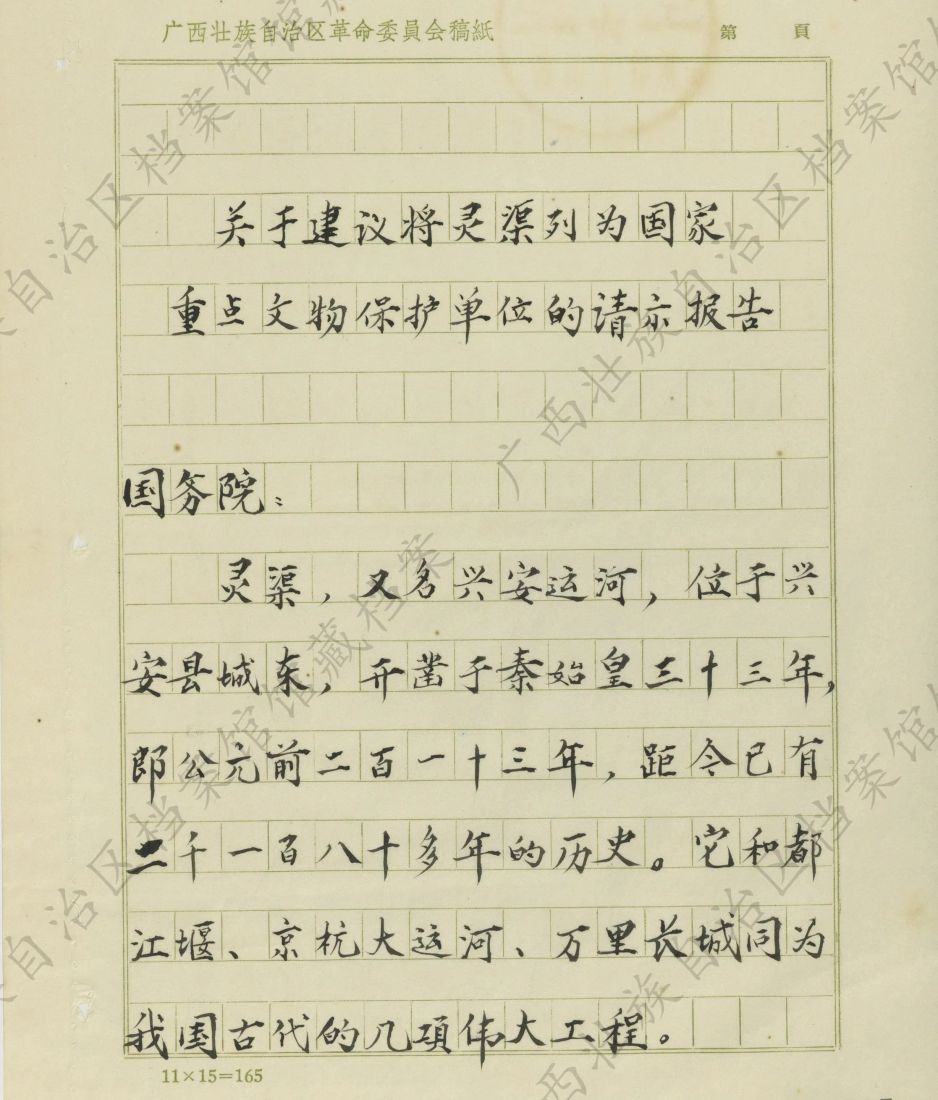 广西壮族自治区革命委員会稿紙 第 頁
关于建议将灵渠列为国家
重点文物保护单位的请示报告
国务院：
灵渠，又名兴安运河，位于兴
安县城东，开凿于秦始皇三十三年，
即公元前二百一十三年，距今已有
二千一百八十多年的历史。它和都
江堰、京杭大运河、万里长城同为
我国古代的几項伟大工程。
11×15=165
广西壮族自治区档案馆馆藏档案